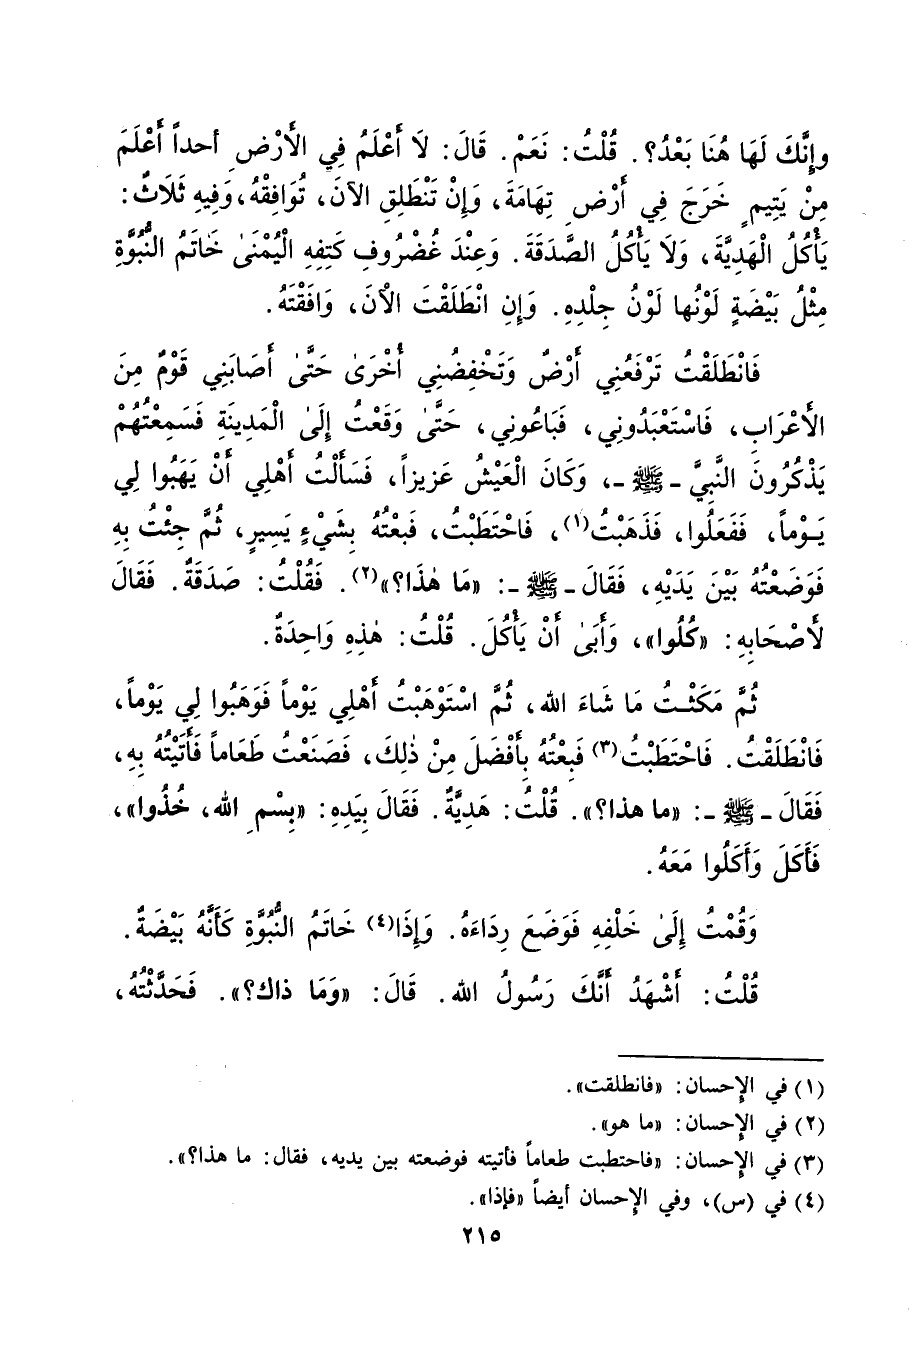 وإِنَّكَ لَهَا هُنَا بَعْدُ؟. قُلْتُ: نَعَمْ. قَالَ: لاَ أَعْلَمُ فِي الأَرْضِ أحداً أَعْلَمَ
مِنْ يَتِيمٍ خَرَجَ فِي أَرْضِ تِهَامَةَ، وَإِنْ تَنْطَلِقِ الآنَ، تُوَافِقْهُ، وَفِيهِ ثَلَاثٌ:
يَأْكُلُ الْهَدِيَّةَ، وَلَا يَأْكُلُ الصَّدَقَةَ. وَعِنْدَ غُضْرُوفِ كَتِفِهِ الْيُمْنَىٰ خَاتَمُ النُّبُوَّةِ
مِثْلُ بَيْضَةٍ لَوْنُها لَوْنُ جِلْدِهِ. وَإِنِ انْطَلَقْتَ الْآنَ، وَافَقْتَهُ.
فَانْطَلَقْتُ تَرْفَعُنِي أَرْضٌ وَتَخْفِضُنِي أُخْرَىٰ حَتَّىٰ أَصَابَنِي قَوْمٌ مِنَ
الأَعْرَابِ، فَاسْتَعْبَدُونِي، فَبَاعُونِي، حَتَّىٰ وَقَعْتُ إِلَىٰ الْمَدِينَةِ فَسَمِعْتُهُمْ
يَذْكُرُونَ النَّبِيَّ - ﷺ -، وَكَانَ الْعَيْشُ عَزِيزاً، فَسَأَلْتُ أَهْلِي أَنْ يَهَبُوا لِي
يَـوْماً، فَفَعَلُوا، فَذَهَبْتُ(١)، فَاحْتَطَبْتُ، فَبِعْتُهُ بِشَيْءٍ يَسِيرٍ، ثُمَّ جِئْتُ بِهِ
فَوَضَعْتُهُ بَيْنَ يَدَيْهِ، فَقَالَ - ﷺ -: «مَا هٰذَا؟»(٢). فَقُلْتُ: صَدَقَةٌ. فَقَالَ
لأَصْحَابِهِ: «كُلُوا»، وَأَبَىٰ أَنْ يَأْكُلَ. قُلْتُ: هٰذِهِ وَاحِدَةٌ.
ثُمَّ مَكَثْتُ مَا شَاءَ الله، ثُمَّ اسْتَوْهَبْتُ أَهْلِي يَوْماً فَوَهَبُوا لِي يَوْماً،
فَانْطَلَقْتُ. فَاحْتَطَبْتُ(٣) فَبِعْتُهُ بِأَفْضَلَ مِنْ ذٰلِكَ، فَصَنَعْتُ طَعَاماً فَأَتَيْتُهُ بِهِ،
فَقَالَ - ﷺ -: «ما هذا؟». قُلْتُ: هَدِيَّةٌ. فَقَالَ بِيَدِهِ: «بِسْمِ الله، خُذُوا»،
فَأَكَلَ وَأَكَلُوا مَعَهُ.
وَقُمْتُ إِلَىٰ خَلْفِهِ فَوَضَعَ رِدَاءَهُ. وَإِذَا(٤) خَاتَمُ النُّبُوَّةِ كَأَنَّهُ بَيْضَةٌ.
قُلْتُ: أَشْهَدُ أَنَّكَ رَسُولُ الله. قَالَ: «وَمَا ذاك؟». فَحَدَّثْتُهُ،
(١) في الإحسان: «فانطلقت».
(٢) في الإحسان: «ما هو».
(٣) في الإحسان: «فاحتطبت طعاماً فأتيته فوضعته بين يديه، فقال: ما هذا؟».
(٤) في (س)، وفي الإحسان أيضاً «فإذا».
٢١٥